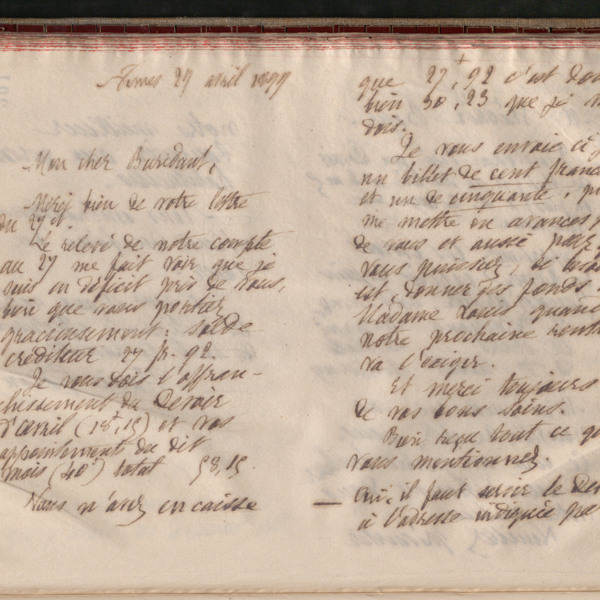 29 avril 1899
Mon cher Buridant,
Merci bien de votre lettre
du 27 ct.
Le relevé de notre compte
au 27 me fait voir que je
suis en déficit près de vous,
bien que vous portiez
gracieusement : solde
créditeur 27 fr. 92.
Je vous dois l'affran-
chissement du Devoir
d'avril (18f,15) et vos
appointements du dit
mois (40f) total 58,15.
Vous n'avez en caisse
que 27f,92 c'est donc
bien 30f,23 que je
dois.
Je vous envoie
un billet de cent francs
et un de cinquante,
me mettre en avances
de vous et aussi pour
vous puissiez, si besoin
est, donner des fonds
Madame Louis quand
notre prochaine
va l'exiger.
Et merci toujours
de vos bons soins.
Bien reçu tout ce
vous mentionnez.
— Oui, il faut servir le
à l'adresse indiquée